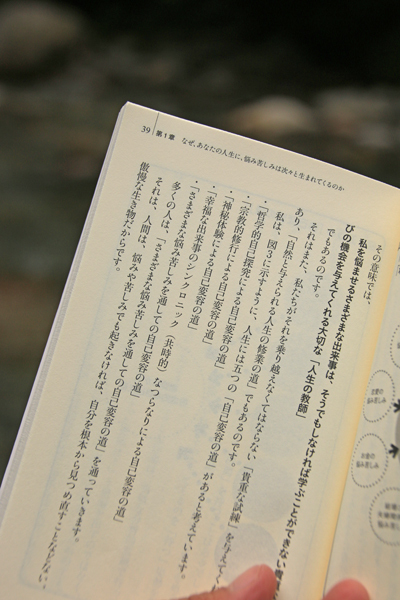 39 第1章 なぜ、あなたの人生に、悩み苦しみは次々と生まれてくるのか
その意味では、
私を悩ませるさまざまな出来事は、そうでもしなければ学ぶことができない
びの機会を与えてくれる大切な「人生の教師」
でもあるのです。
それはまた、私たちがそれを乗り越えなくてはならない「貴重な試練」を与えて
あり、「自然と与えられる人生の修業の道」でもあるのです。
私は、図3に示すように、人生には五つの「自己変容の道」があると考えています。
・「哲学的自己探究による自己変容の道」
・「宗教的修行による自己変容の道」
・「神秘体験による自己変容の道」
・「幸福な出来事のシンクロニック（共時的）なつらなりによる自己変容の道」
・「さまざまな悩み苦しみを通しての自己変容の道」
多くの人は、「さまざまな悩み苦しみを通しての自己変容の道」を通っていきます。
それは、人間は、悩みや苦しみでも起きなければ、自分を根本から見つめ直すことなどない、
傲慢な生き物だからです。
お金の
悩み苦しみ